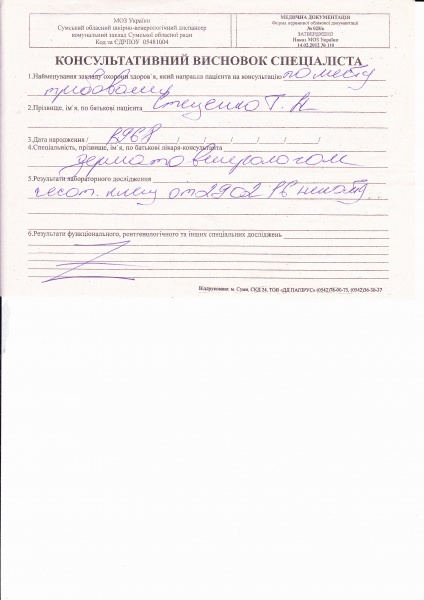 МОЗ України
Сумський обласний шкірно-венерологічний диспансер
комунальний заклад Сумської обласної ради
Код за ЄДРПОУ 05481604
МЕДИЧНА ДОКУМЕНТАЦІЯ
Форма первинної облікової документації
№ 028/о
ЗАТВЕРДЖЕНО
Наказ МОЗ України
14.02.2012 № 110
КОНСУЛЬТАТИВНИЙ ВИСНОВОК СПЕЦІАЛІСТА
1.Найменування закладу охорони здоров´я, який направляв пацієнта на консультацію по месту
требования
2.Прізвище, ім´я, по батькові пацієнта Стеценко Т. А
3.Дата народження / 1968 / / / /
4.Спеціальність, прізвище, ім´я, по батькові лікаря-консультанта
дерматовенерологом
5.Результати лабораторного дослідження
чесот. клещ от 29 02
6.Результати функціонального, рентгенологічного та інших спеціальних досліджень
Віддруковано: м. Суми, СКД 24, ТОВ «ВД ПАПІРУС» (0542)78-00-75, (0542)36-30-37